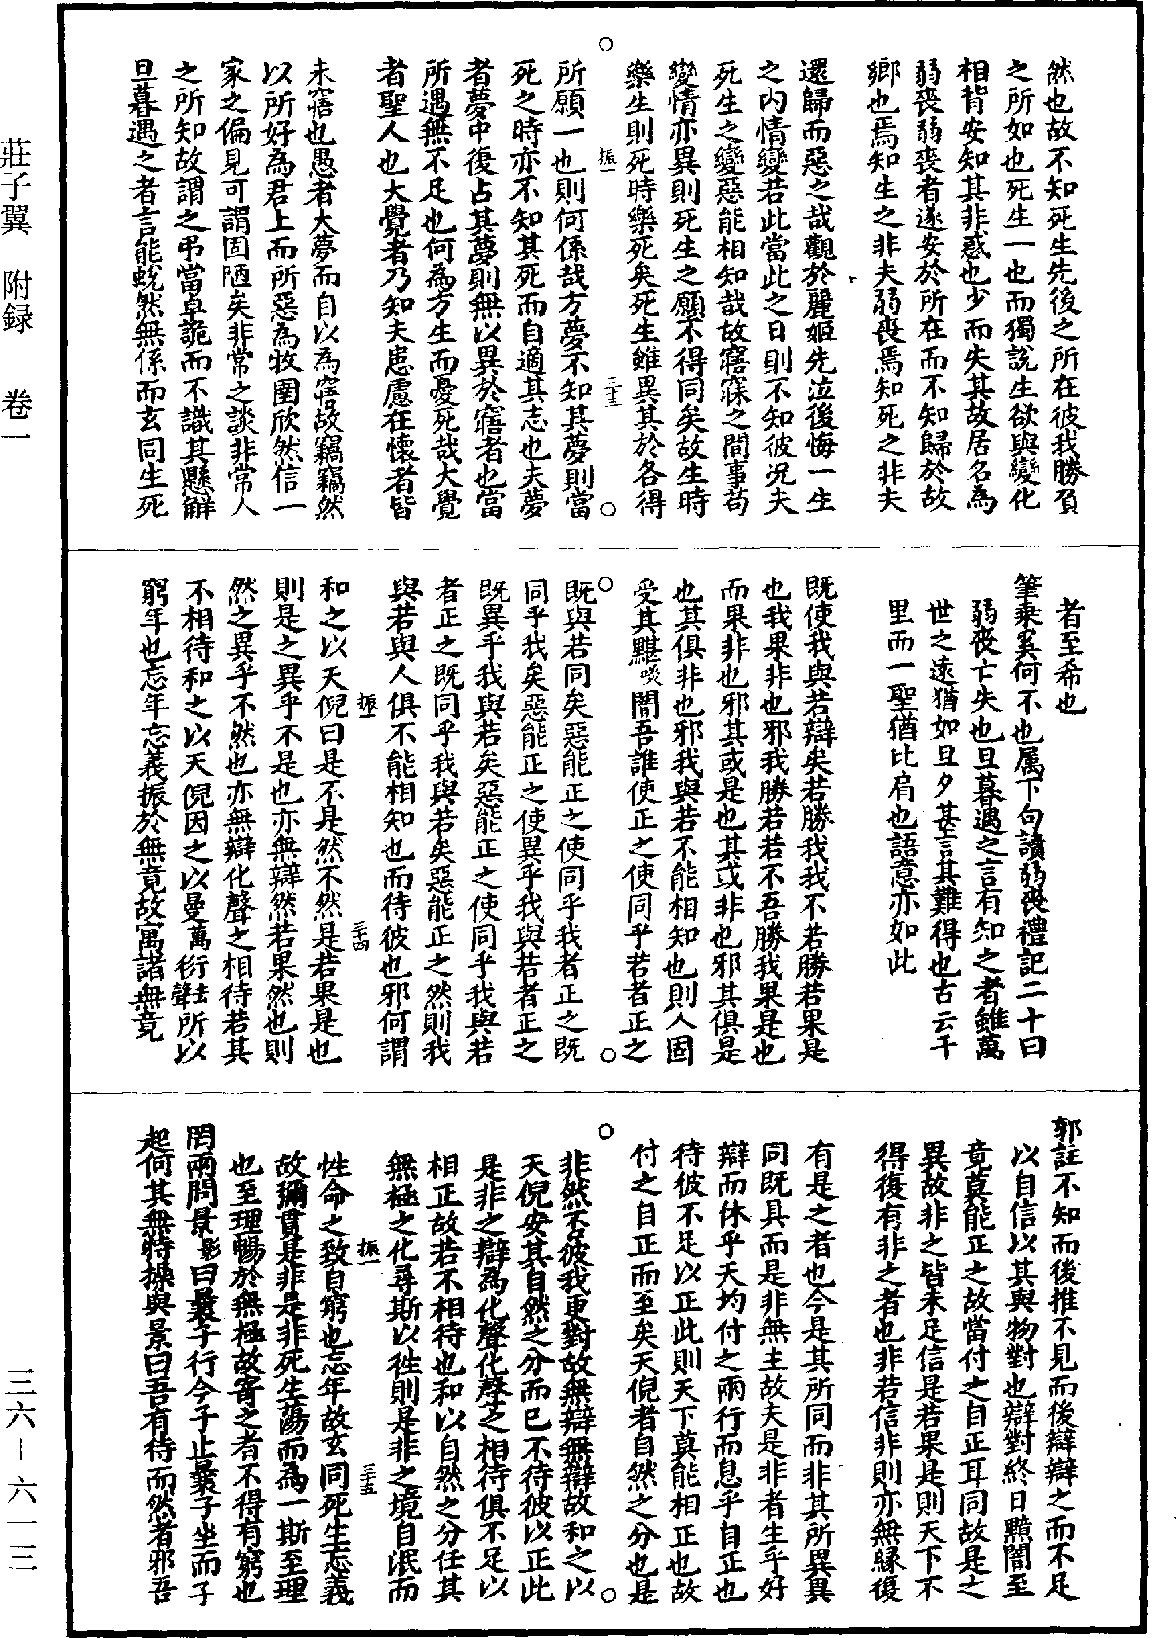 莊子翼　附録　卷一
三六－六一三
然也故不知死生先後之所在彼我勝負
之所如也死生一也而獨說生欲與變化
相背安知其非惑也少而失其故居名為
弱喪弱喪者遂安於所在而不知歸於故
鄉也焉知生之非夫弱喪焉知死之非夫
還歸而惡之哉觀於麗姬先泣後悔一生
之内情變若此當此之日則不知彼況夫
死生之變惡能相知哉故寤寐之間事苟
變情亦異則死生之願不得同矣故生時
樂生則死時樂死矣死生雖異其於各得
振一
三十三
所願一也則何係哉方夢不知其夢則當
死之時亦不知其死而自適其志也夫夢
者夢中復占其夢則無以異於寤者也當
所遇無不足也何為方生而憂死哉大覺
者聖人也大覺者乃知夫患慮在懷者皆
未寤也愚者大夢而自以為寤故竊竊然
以所好為君上而所惡為牧圉欣然信一
家之偏見可謂固陋矣非常之談非常人
之所知故謂之弔當卓詭而不識其懸解
旦暮遇之者言能蛻然無係而玄同生死
者至希也
筆乘奚何不也属下句讀弱喪禮記二十曰
弱喪亡失也旦暮遇之言有知之者雖萬
世之遠猶如旦夕甚言其難得也古云千
里而一聖猶比肩也語意亦如此
既使我與若辯矣若勝我我不若勝若果是
也我果非也邪我勝若若不吾勝我果是也
而果非也邪其或是也其或非也邪其俱是
也其俱非也邪我與若不能相知也則人固
受其黮啖闇吾誰使正之使同乎若者正之
既與若同矣惡能正之使同乎我者正之既
同乎我矣惡能正之使異乎我與若者正之
既異乎我與若矣惡能正之使同乎我與若
者正之既同乎我與若矣惡能正之然則我
與若與人俱不能相知也而待彼也邪何謂
振一
三十四
和之以天倪曰是不是然不然是若果是也
則是之異乎不是也亦無辯然若果然也則
然之異乎不然也亦無辯化聲之相待若其
不相待和之以天倪因之以曼萬衍去聲所以
窮年也忘年忘義振於無竟故寓諸無竟
郭註不知而後推不見而後辯辯之而不足
以自信以其與物對也辯對終日黮闇至
竟莫能正之故當付之自正耳同故是之
異故非之皆未足信是若果是則天下不
得復有非之者也非若信非則亦無緣復
有是之者也今是其所同而非其所異異
同既具而是非無主故夫是非者生乎好
辯而休乎天均付之兩行而息乎自正也
待彼不足以正此則天下莫能相正也故
付之自正而至矣天倪者自然之分也是
非然否彼我更對故無辯無辯故和之以
天倪安其自然之分而已不待彼以正此
是非之辯為化聲化聲之相待俱不足以
相正故若不相待也和以自然之分任其
無極之化尋斯以往則是非之境自泯而
振一
三十五
性命之致自窮也忘年故玄同死生忘義
故彌貫是非是非死生蕩而為一斯至理
也至理暢於無極故寄之者不得有窮也
罔兩問景影曰曩子行今子止曩子坐而子
起何其無特操與景曰吾有待而然者邪吾